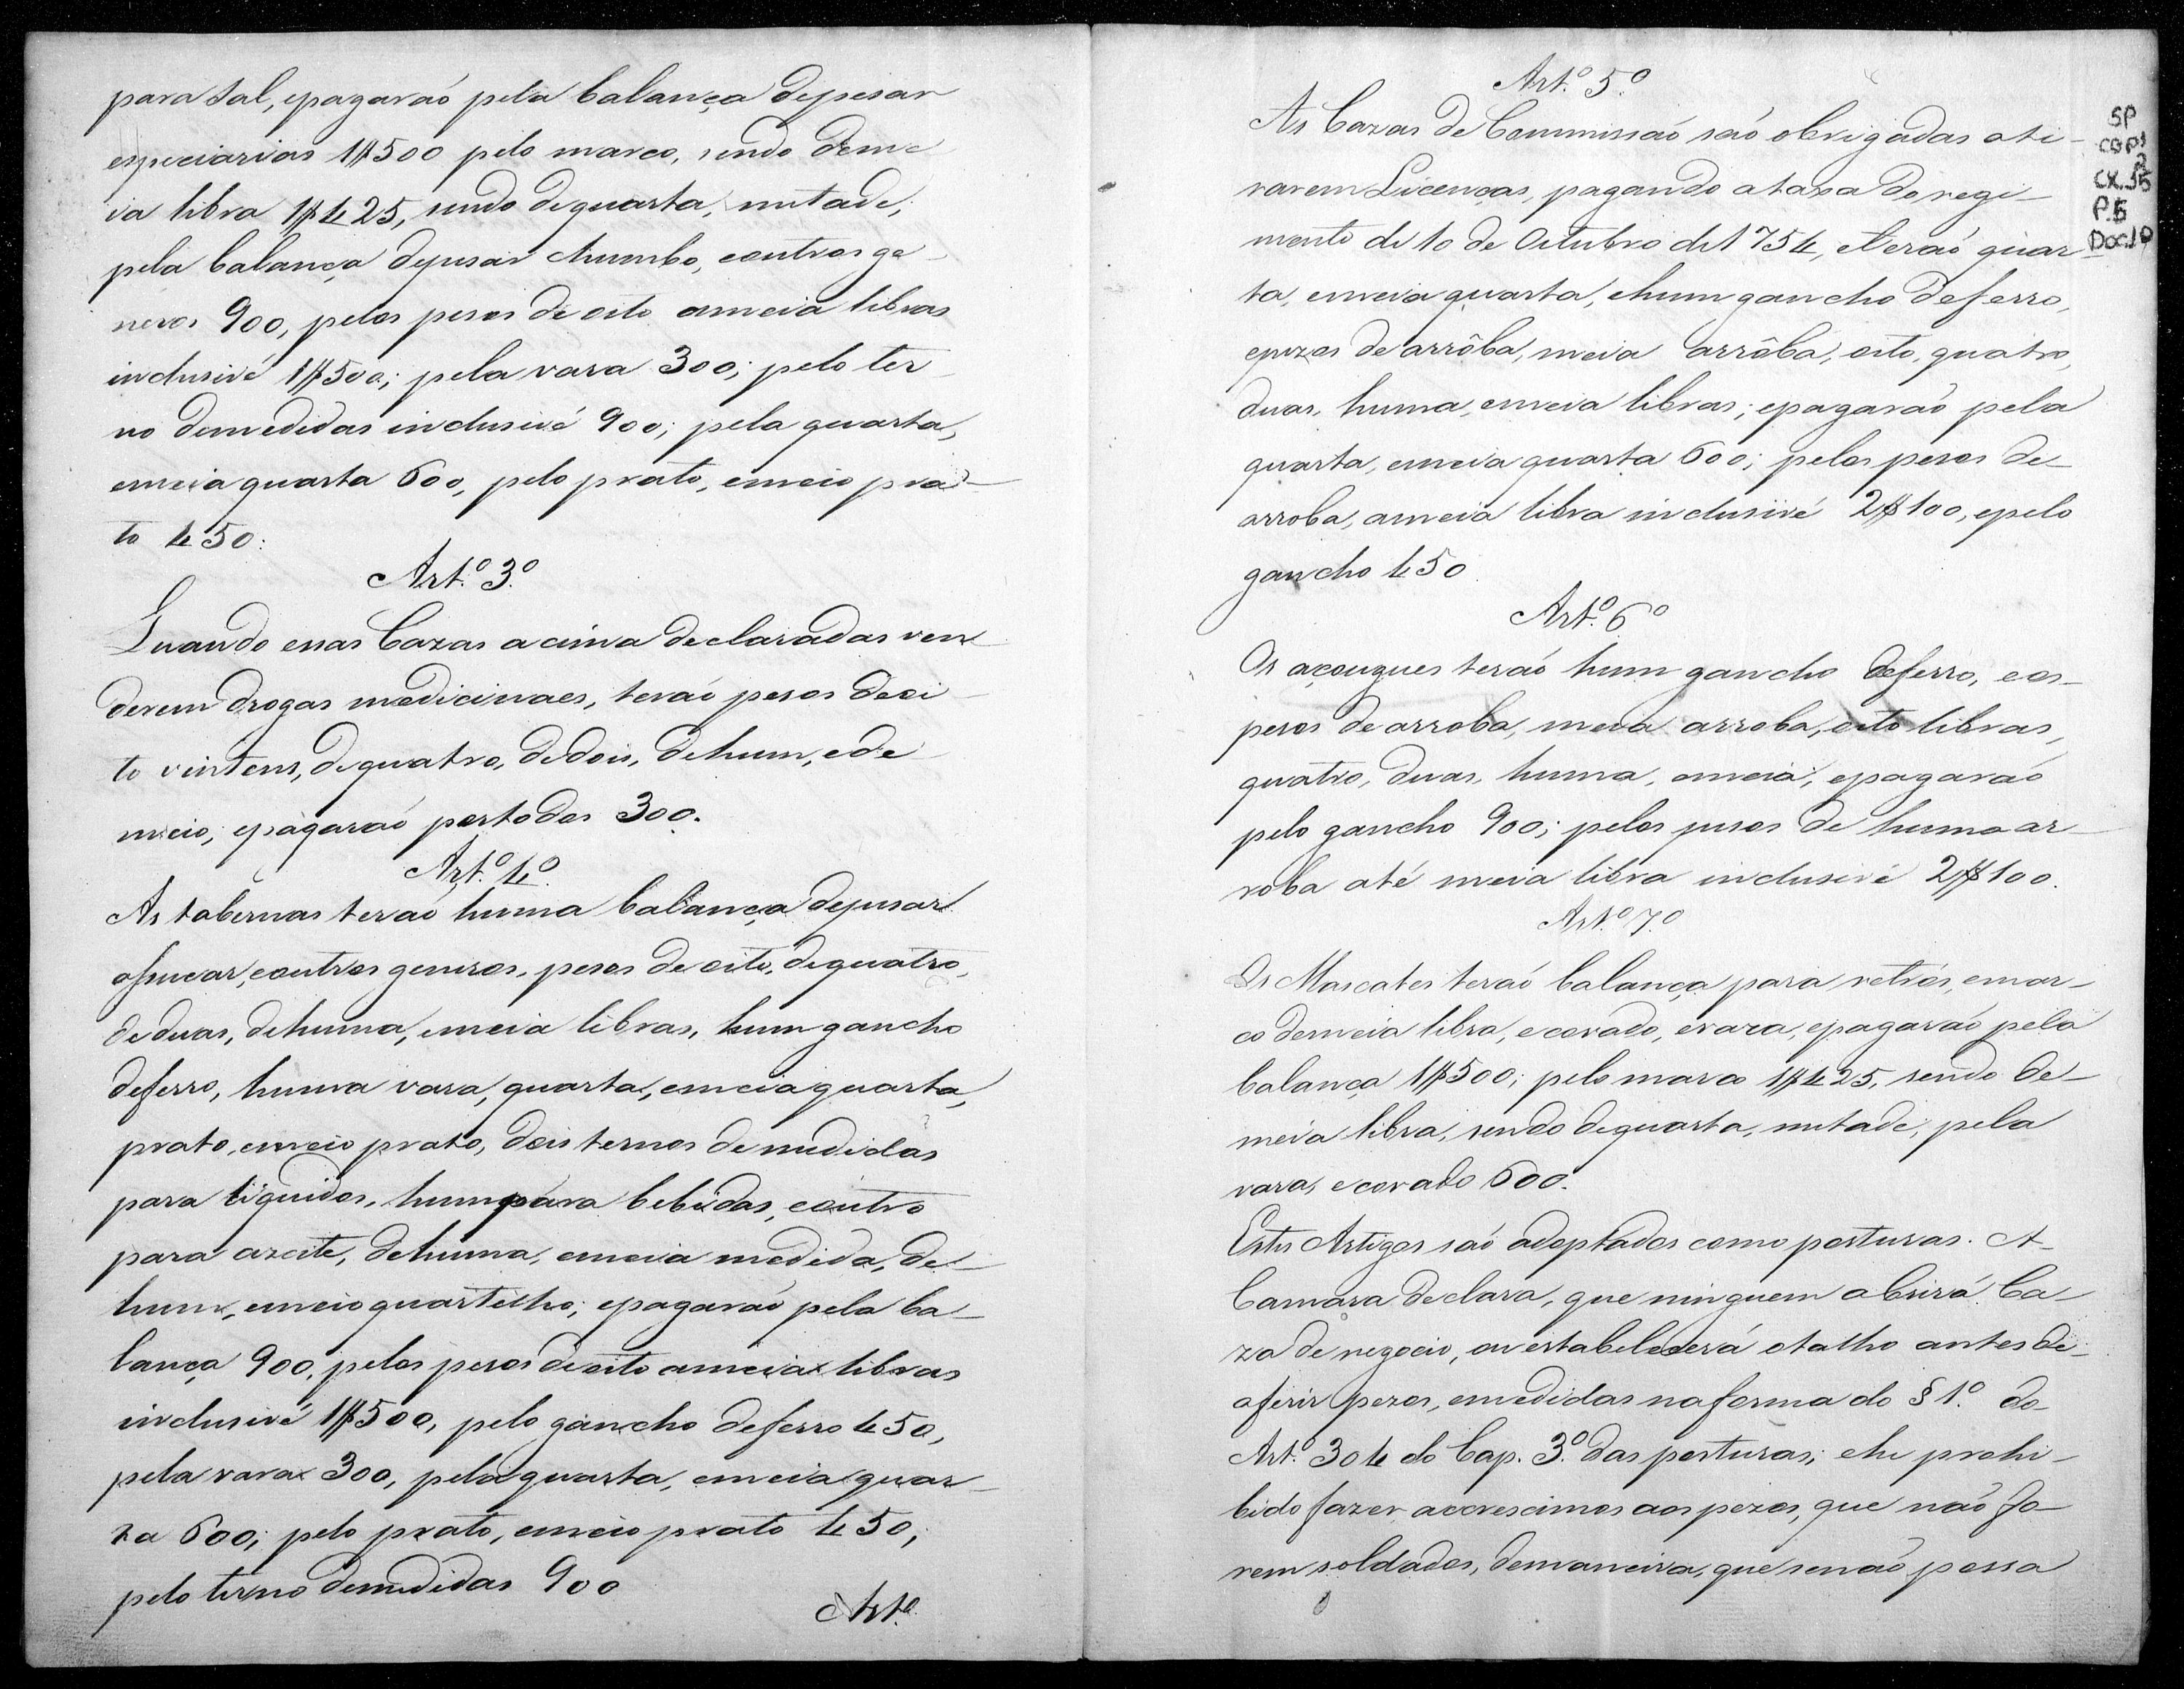 para tal, epagaraó pela balança depesar
especiarias 1$500 pelo marco, sendo deme
ia libra 1$425, sendo dequarta, metade,
pela balança depesar chumbo, eoutros ge-
neros 900, pelos pesos de oito ameia libras
inclusivé 1$500; pela vara 300; pelo ter
no demedidas inclusivé 900; pela quarta,
emeia quarta 600, pelo prato, emeio pra-
to 450:
Art.º 3.º
Quando essas Cazas acima declaradas ven
derem drogas medicinaes, teraó pesos deoi-
to vintens, dequatro, dedois, dehum, ede
meio; epagaraó portodos 300.
Art.º 4.º
As tabernas teraó huma balança depesar
assucar, eoutros generos, pesos deoito, dequatro,
deduas, dehuma, emeia libras, hum gancho
deferro, huma vara, quarta, emeia quarta,
prato, emeio prato, dois ternos demedidas
para liquidos, hum para bebidas, eoutro
para azeite, dehuma, emeia medida, de-
hum, emeio quartilho; epagaraó pela ba-
lança 900, pelos pesos deoito ameia libras
inclusivé 1$500, pelo gancho deferro 450,
pela vara 300, pela quarta, emeia quar-
ta 600; pelo prato, emeio prato 450;
pelo terno demedidas 900
Art.º
Art.º 5.º
As Cazas de Commissaó saó obrigadas ati-
rarem Licenças, pagando a taxa do regi-
mento de 10 de Outubro de 1754, eteraó quar-
ta, emeia quarta, ehum gancho deferro,
epezos de arrôba, meia arrôba, oito, quatro,
duas, huma, emeia libras; epagaraó pela
quarta, emeia quarta 600; pelos pesos de
arroba, ameia libra inclusivé 2$100, epelo
gancho 450
Art.º 6.º
Os açougues teraó hum gancho deferro, eos-
pesos dearroba, meia arroba, oito libras,
quatro, duas, huma, emeia; epagaraó
pelo gancho 900; pelos pesos de huma ar-
roba até meia libra inclusivé 2$100.
Art.º 7.º
Os Mascates teraó balança para retrós, emar-
co demeia libra, ecovado, evara, epagaraó pela
balança 1$500; pelo marco 1$425, sendo de-
meia libra, sendo dequarta, metade, pela
vara, ecovado 600.
Estes Artigos saó adoptados como posturas. A
Camara declara, que ninguem abrirá Ca-
za de negocio, ou estabelecerá otalho antes de-
aferir pezos, emedidas na forma do § 1.º do-
Art.º 304 do Cap. 3.º das posturas; ehe prohi-
bido fazer accrescimos aos pezos, que naó fo-
rem soldados, demaneira, que senaó possa
SP
CGP1
2
CX.35
P.5
Doc.19